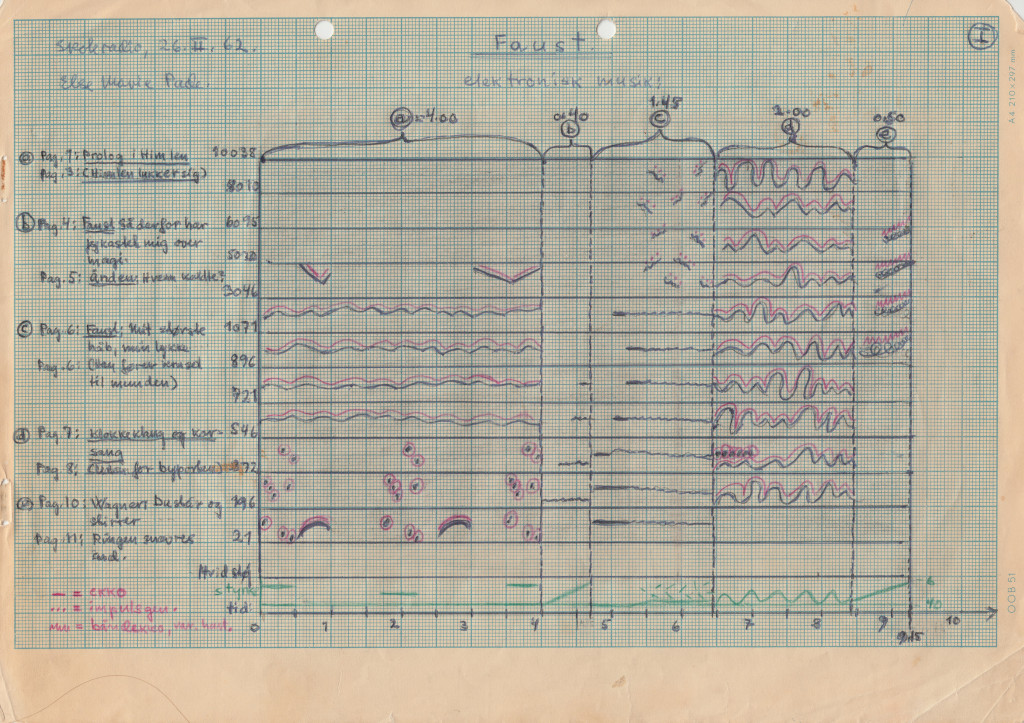 Skoleradio, 26. II. 62.
Faust.
I
Else Marie Pade.
elektronisk musik:
a = 4.00
0.40
b
1.45
c
2.00
d
0.50
e
a Pag. 1: Prolog i Himlen
Pag. 3: (Himlen lukker sig)
b Pag. 4: Faust Så derfor har
jeg kastet mig over
magi.
Pag. 5: Ånden: Hvem kaldte?
c Pag. 6: Faust: Mit største
håb, min lykke
Pag. 6: (han fører
til munden)
d Pag 7: Klokkeklang og kor-
sang
Pag 8: for byporten)
e Pag. 10: Wagner: Du står og
stirrer
Pag. 11: Ringen snævres
ind.
10038
8010
6095
5020
3046
1071
896
721
546
372
196
21
Hvid støj
styrke
tid:
— = ekko
... = impulsgen.
= båndekko, var. hast.
0 1 2 3 4 5 6 7 8 9 9.15 10
-6
-40
A4 210 x 297 mm
OOB 51